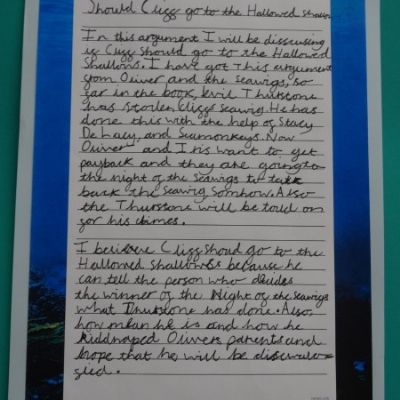 Should Cliggs go to the Hallowed Shallows
In this argument I will be disscusing
if Cliggs Should go to the Hallowed
Shallows. I have got This argument
from Oliver and the Seawigs, so
far in the book, evil Thurstone
has Stolen Cliggs' Seawig. He has
done this with the help of Stacy
De Lacy, and Seamonkeys. Now
Oliver and Iris want to get
payback and they are going to
the night of the Seawigs to take
back the Seawig Somhow. Also
the Thurstone will be told on
for his crimes.
I believe Cliggs Shoud go to the
Hallowed Shallows because he
can tell the person who decides
the winner of the Night of the Seawigs
what Thurstone has done. Also
how mean he is and how he
kiddnaped Olivers parents and
hope that he will be discwali
fied.